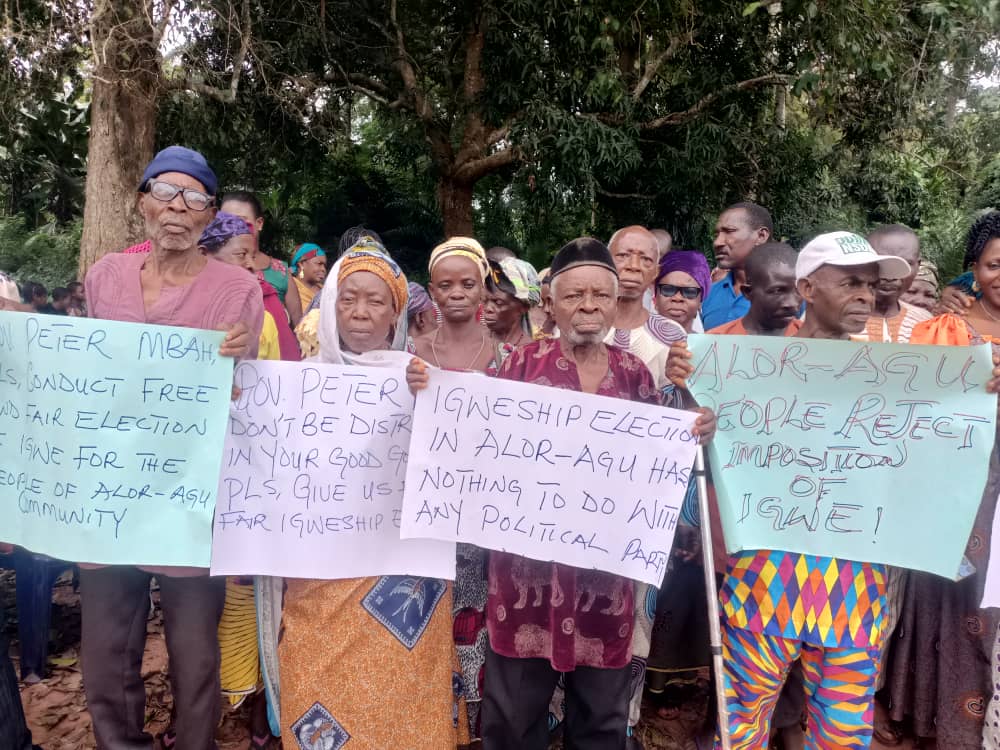 PETER MBAH,
PLS, CONDUCT FREE
FAIR ELECTION
IGWE FOR THE
PEOPLE OF ALOR-AGU
COMMUNITY
GOV. PETER
DON'T BE
IN YOUR GOOD
PLS, GIVE US
FAIR IGWESHIP
IGWESHIP ELECTION
IN ALOR-AGU HAS
NOTHING TO DO WITH
ANY POLITICAL PARTY
ALOR-AGU
PEOPLE REJECT
IMPOSITION
OF
IGWE!